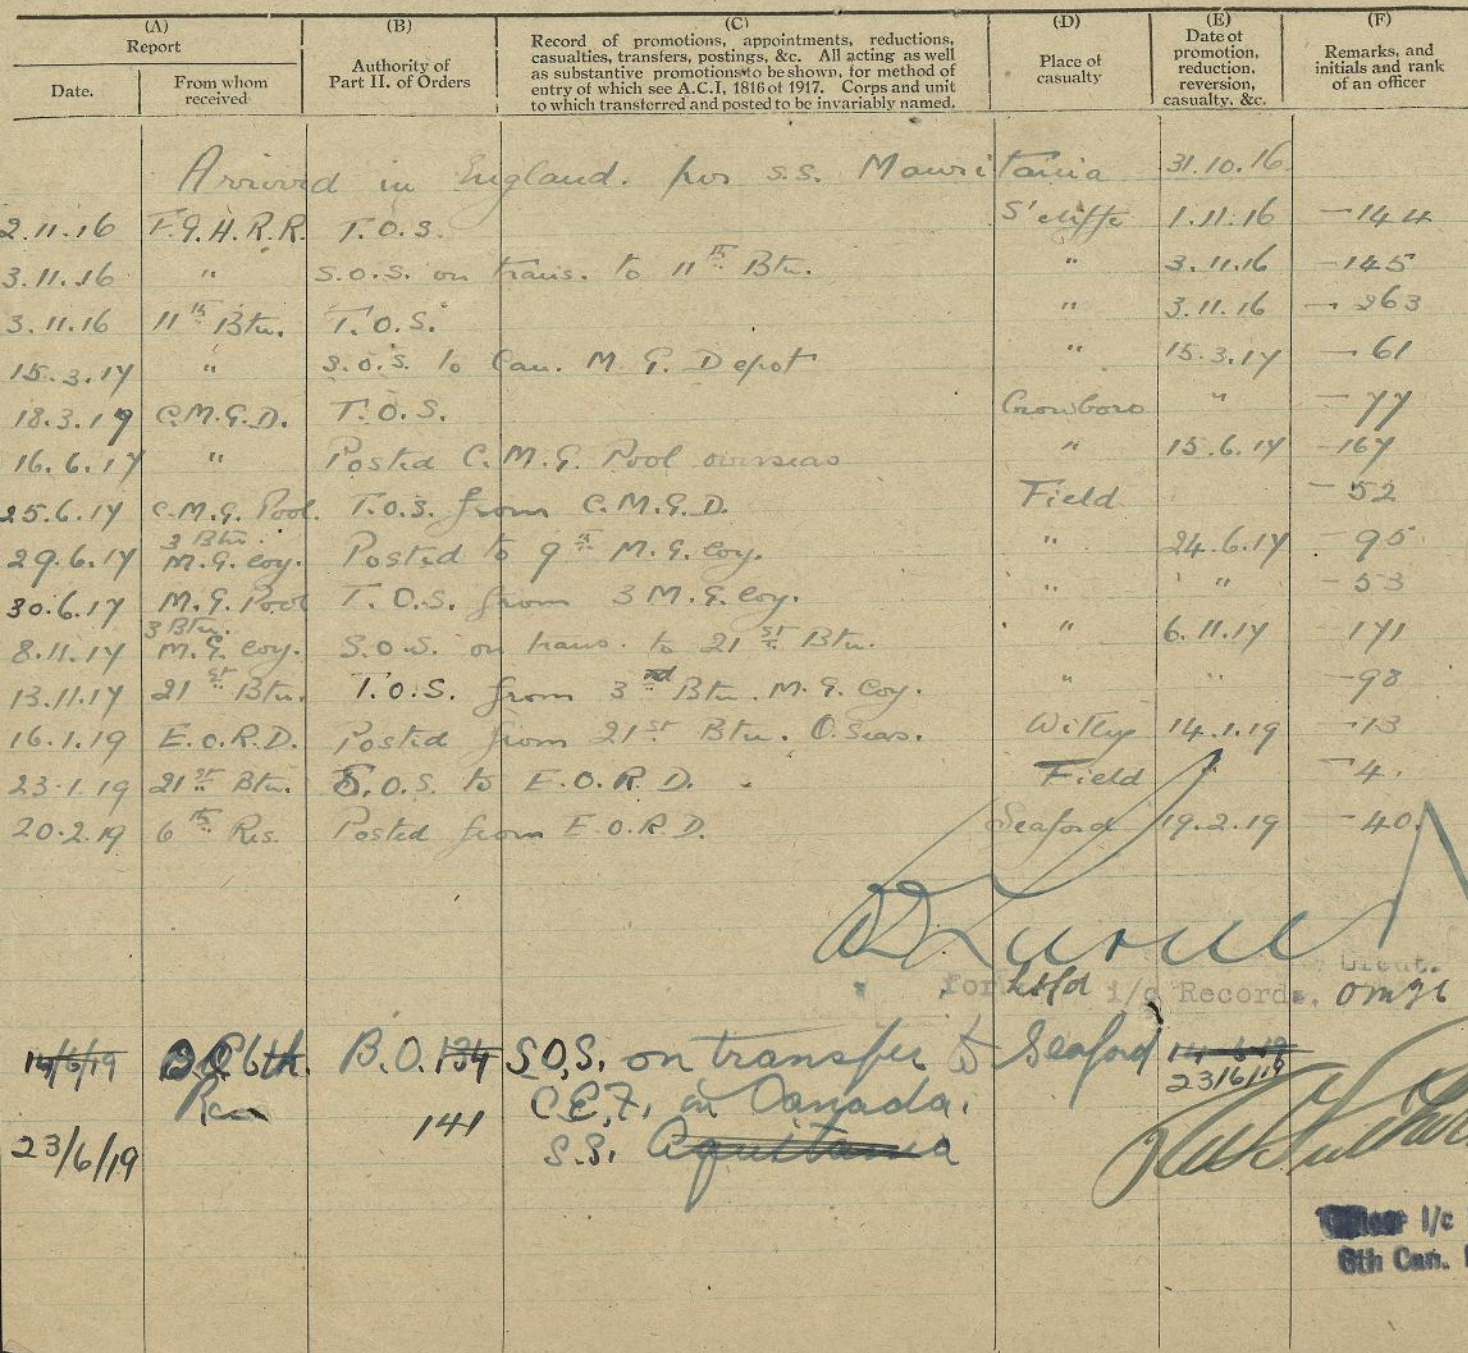 (A) (B) (C) (D) (E) (F)
Report
Date. From whom received
Authority of Part II. of Orders
Record of promotions, appointments, reductions,
casualties, transfers, postings, &c. All acting as well
as substantive promotions to be shown, for method of
entry of which see A.C.I, 1816 of 1917. Corps and unit
to which transferred and posted to be invariably named.
Place of casualty
Date of promotion, reduction, reversion, casualty. &c.
Remarks, and initials and rank of an officer
Arrived in England. per s.s. Mauritania 31.10.16
2.11.16 F.G.H.R.R. T.O.S. S'cliffe 1.11.16 -144
3.11.16 " S.O.S. on trans. to 11th Btn. " 3.11.16 -145
3.11.16 11th Btn. T.O.S. " 3.11.16 -263
15.3.17 " S.O.S. to Can. M.G. Depot " 15.3.17 -61
18.3.17 C.M.G.D. T.O.S. Crowboro " -77
16.6.17 " Posted C.M.G. Pool overseas " 15.6.17 -167
25.6.17 C.M.G. Pool. T.O.S. from C.M.G.D. Field -52
29.6.17 3 Btn. M.G. Coy. Posted to 9th M.G. Coy. " 24.6.17 -95
30.6.17 M.G. Pool T.O.S. from 3 M.G. Coy. " " -53
8.11.17 3 Btn. M.G. Coy. S.O.S. on trans. to 21st Btn. " 6.11.17 -171
13.11.17 21st Btn. T.O.S. from 3rd Btn. M.G. Coy. " " -98
16.1.19 E.O.R.D. Posted from 21st Btn. O.Seas. Witley 14.1.19 -13
23.1.19 21st Btn. S.O.S. to E.O.R.D. Field " -4.
20.2.19 6th Res. Posted from E.O.R.D. Seaford 19.2.19 -40.
Lieut.
for i/c Records, OMFC
14/6/19 O.C. 6th. B.O. 134 S.O.S. on transfer to Seaford 14-6-19
23/6/19
Res C.E.F. in Canada.
141
S.S. Aquitania
23/6/19
Officer i/c
6th Can.